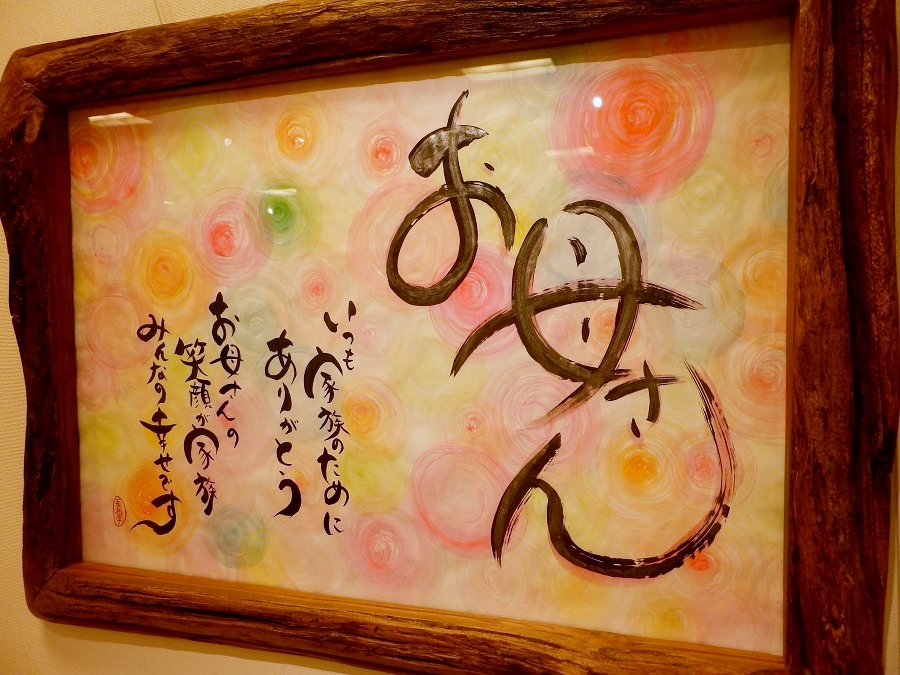 お母さん
いつも家族のために
ありがとう
お母さんの
笑顔が家族
みんなの幸せです